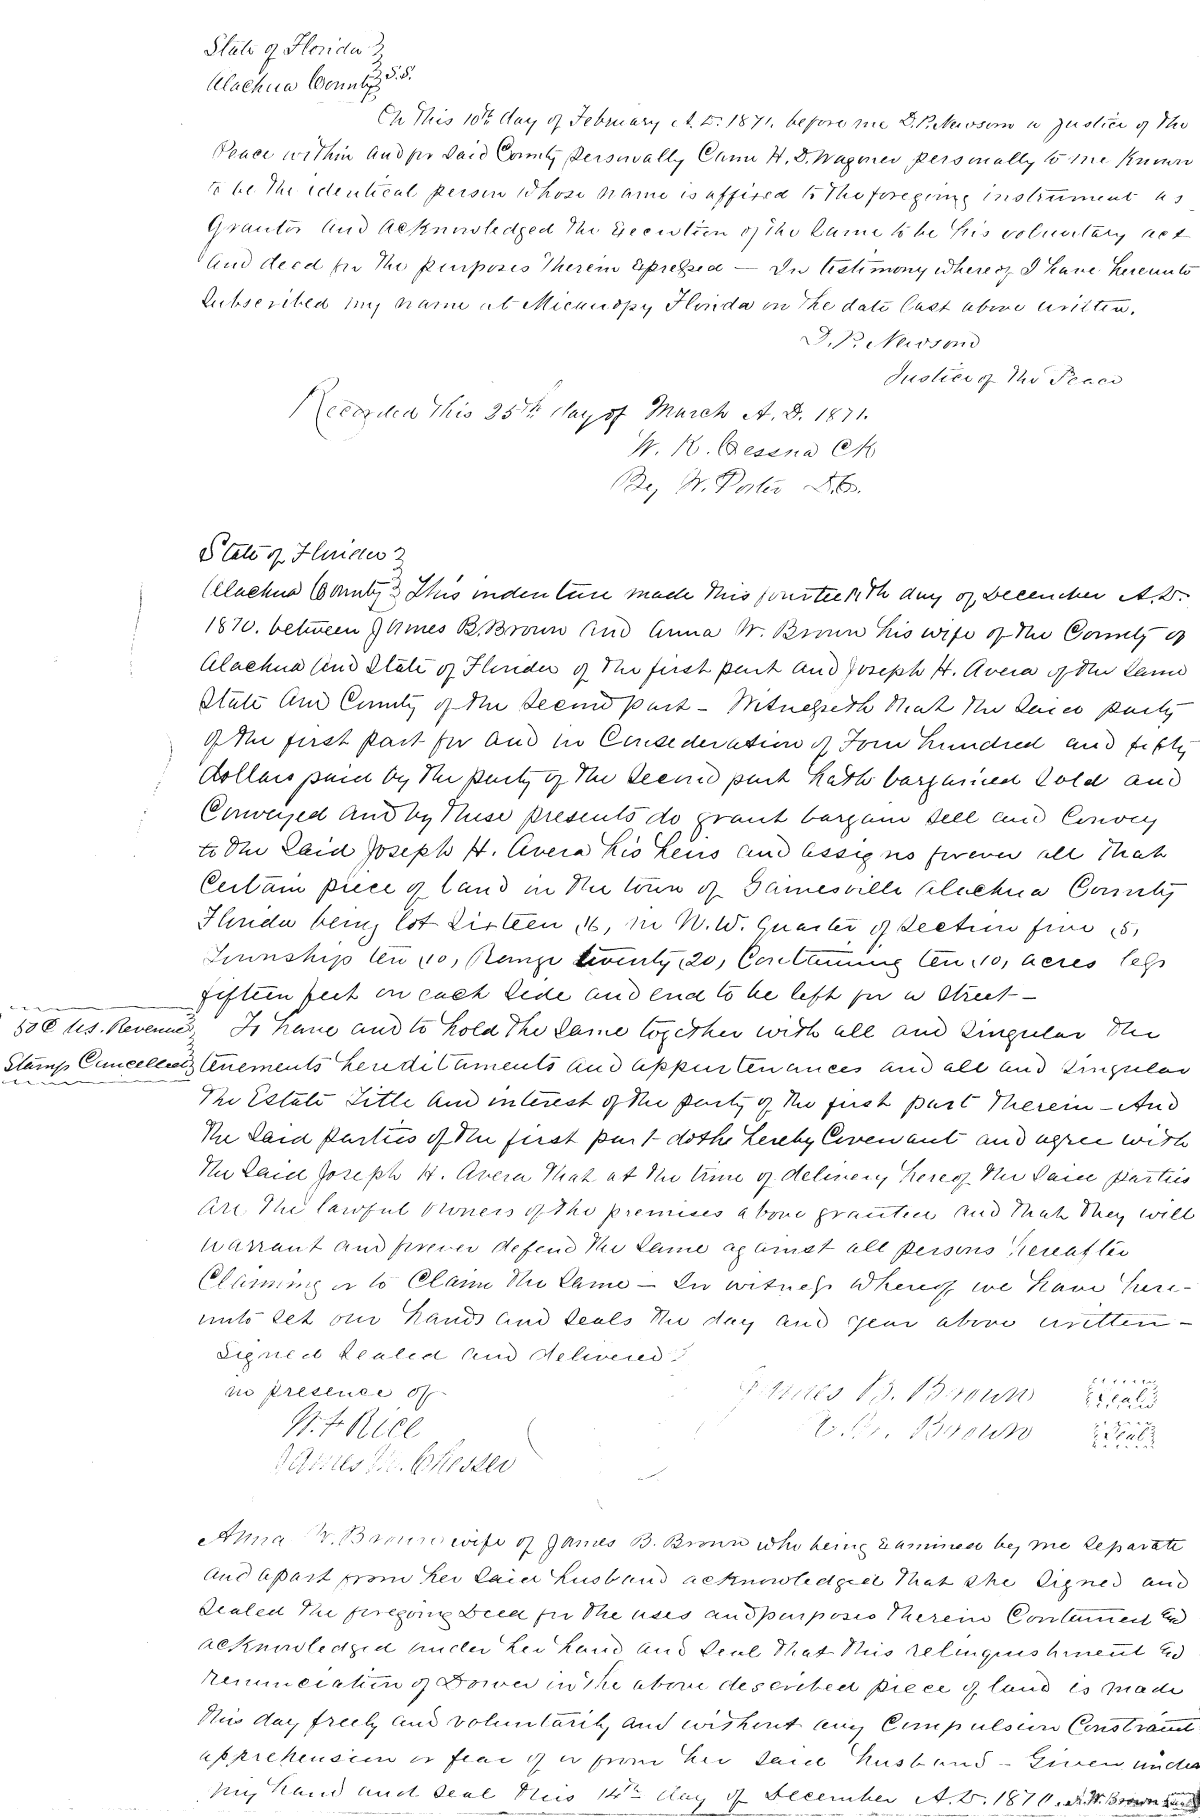 State of Florida }
Alachua County } S.S.
On this 10th day of February A.D. 1871. before me D.P. Newsom a Justice of the
Peace within and for Said County personally Came H. D. Wagoner personally to me Known
to be the identical person whose name is affixed to the foregoing instrument as
Grantor and acknowledged the Execution of the Same to be his voluntary act
and deed for the purposes therein Expressed — In testimony whereof I have hereunto
Subscribed my name at Micanopy Florida on the date last above written.
D. P. Newsom
Justice of the Peace
Recorded this 25th day of March A. D. 1871.
W. K. Cessna Ck
By W. Porter D.C.
State of Florida }
Alachua County } This indenture made this fourteenth day of December A.D.
1870. between James B. Brown and Anna W. Brown his wife of the County of
Alachua and State of Florida of the first part and Joseph H. Avera of the Same
State and County of the Second part — Witnesseth that the Said party
of the first part for and in Consederation of Four hundred and fifty
dollars paid by the party of the Second part hath bargained Sold and
Conveyed and by these presents do grant bargain Sell and Convey
to the Said Joseph H. Avera his heirs and assigns forever all that
Certain piece of land in the town of Gainesville Alachua County
Florida being lot Sixteen ,16, in N.W. Quarter of Section five ,5,
Township ten ,10, Range twenty ,20, Containing ten ,10, acres less
fifteen feet on each Side and end to be left for a Street —
50¢ U.S. Revenue
Stamp Cancelled
To have and to hold the Same together with all and Singular the
tenements hereditaments and appurtenances and all and Singular
the Estate Title and interest of the party of the first part therein — And
the Said parties of the first part doth hereby Covenant and agree with
the Said Joseph H. Avera that at the time of delivery hereof the Said parties
are the lawful owners of the premises above granted and that they will
warrant and forever defend the Same against all persons hereafter
Claiming or to Claim the Same — In witness whereof we have here-
unto Set our hands and Seals the day and year above written —
Signed Sealed and delivered }
in presence of
James B. Brown Seal
A. W. Brown Seal
W. F. Rice
James M. Chesser
Anna W. Brown wife of James B. Brown who being Examined by me Separate
and apart from her Said husband acknowledged that she Signed and
Sealed the foregoing Deed for the uses and purposes therein Contained &
acknowledged under her hand and Seal that this relinquishment &
renunciation of Dower in the above described piece of land is made
this day freely and voluntarily and without any Compulsion Constraint
apprehension or fear of or from her Said husband — Given under
my hand and Seal this 14th day of December A.D. 1870. A. W. Brown Seal